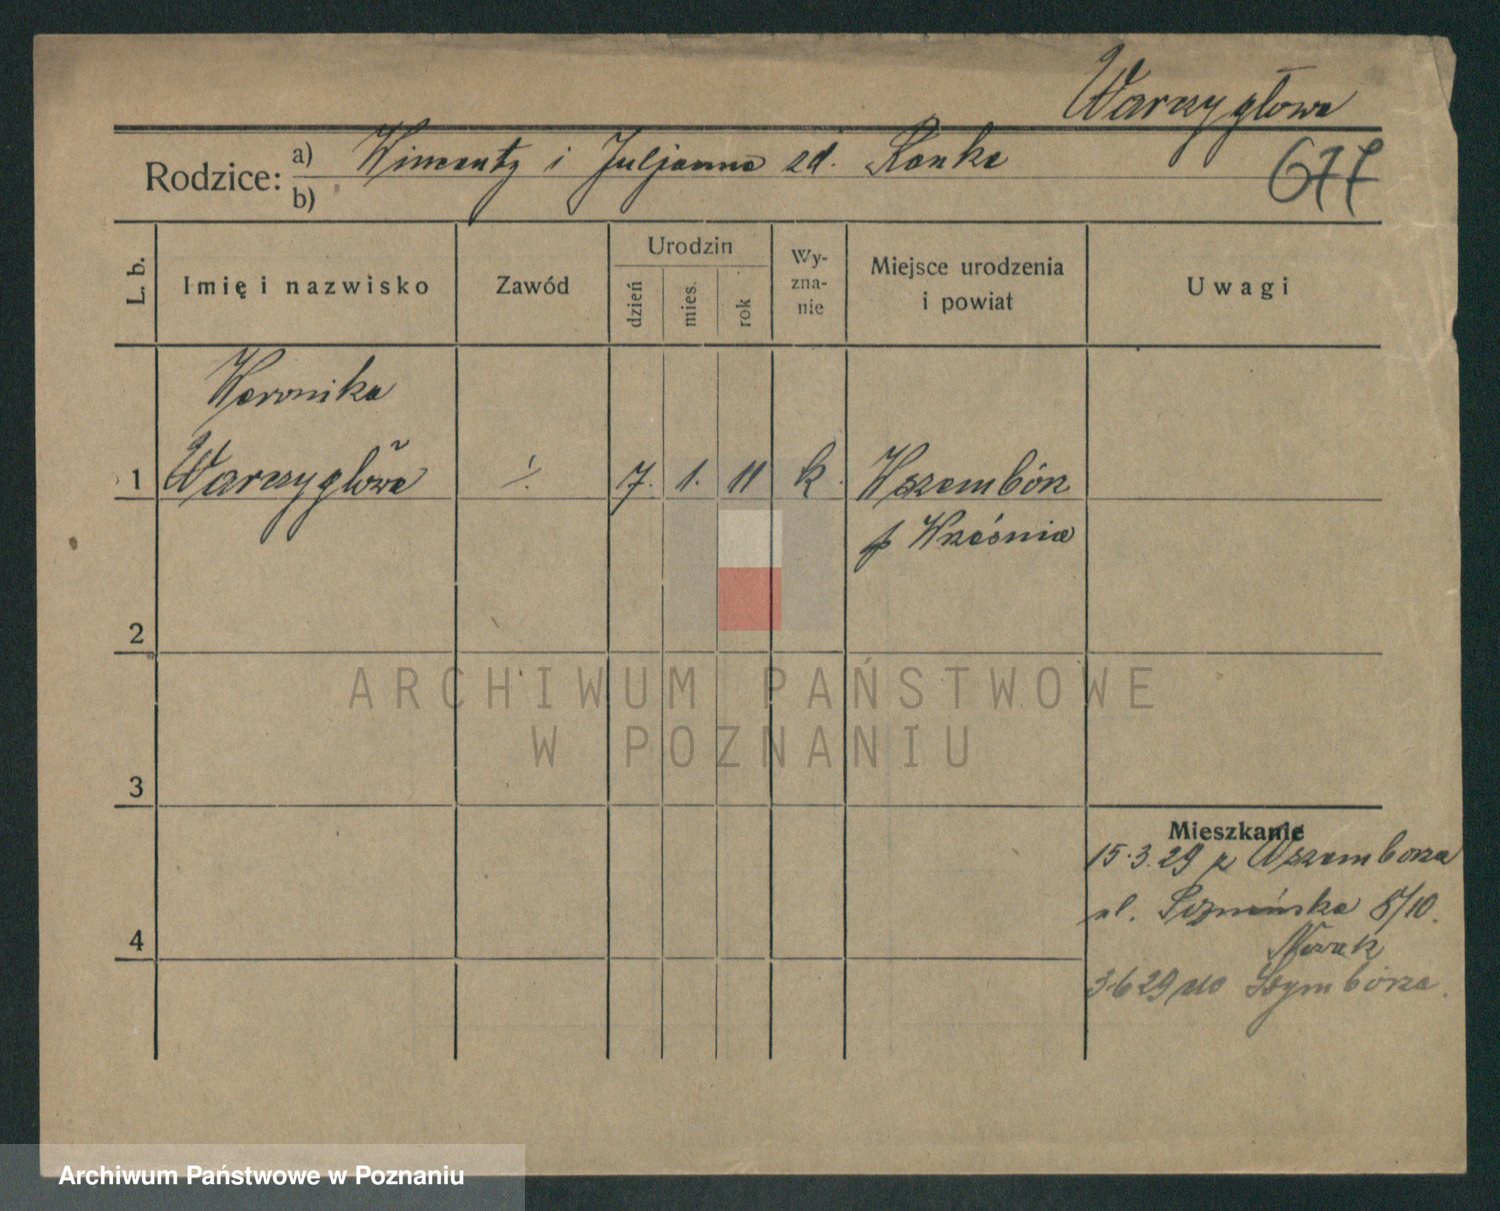 Warczygłowa
Rodzice: a) Wincenty i Juljanna zd. Ranke
b)
677
L. b.
Imię i nazwisko
Zawód
Urodzin
dzień
mies.
rok
Wy-
zna-
nie
Miejsce urodzenia
i powiat
Uwagi
Weronika
1 Warczygłowa ./. 7. 1. 11 k. Wszembórz
p Września
2
3
4
Mieszkanie
15.3.29 z Wszemborza
ul. 8/10.
Nowak
3.6.29 do
ARCHIWUM PAŃSTWOWE
W POZNANIU
Archiwum Państwowe w Poznaniu